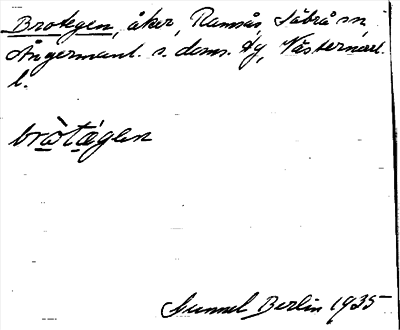 Brotegen, åker, Ramsås, Säbrå sn,
Ångermanl. s. doms. hg, Västernorrl.
l.
bròtágen
Gunnel Berlin 1935